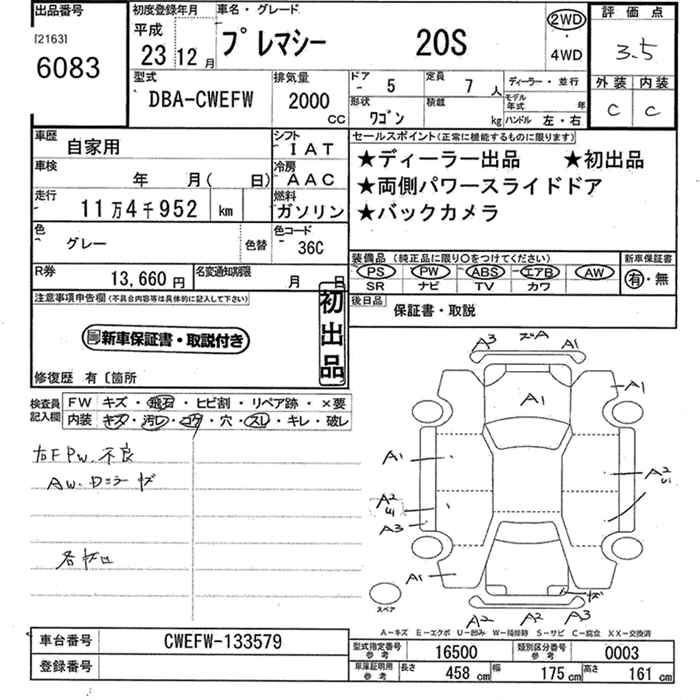 出品番号
[2163]
6083
初度登録年月
平成
23 12 月
車名・グレード
プレマシー 20S
2WD
・
4WD
評価点
3.5
外装 内装
C C
型式
DBA-CWEFW
排気量
2000
CC
ドア
5
定員
7 人
形状
ワゴン
積載
kg
ディーラー・並行
モデル年式 年
ハンドル 左・右
車歴
自家用
シフト
IAT
車検
年 月( 日)
冷房
AAC
走行
11万4千952 km
燃料
ガソリン
色
グレー
色替
色コード
36C
R券
13,660 円
名変通知期限
月 日
セールスポイント(正常に機能するものに限ります)
★ディーラー出品 ★初出品
★両側パワースライドドア
★バックカメラ
装備品 (純正品に限り○をつけてください)
PS PW ABS エアB AW
SR ナビ TV カワ
新車保証書
有・無
後日品
保証書・取説
注意事項申告欄(不具合内容等は具体的に記入して下さい)
新車保証書・取説付き
初出品
修復歴 有〔箇所
検査員記入欄
FW キズ・飛石・ヒビ割・リペア跡・×要
内装 キズ・汚レ・コゲ・穴・スレ・キレ・破レ
右F PW.不良
AW.Dニラーキズ
各キズ凹
A3 A1
A1
A1
A1
A2
U1
A2
U1
A3
A1
キズ
A2 A2 A3
スペア
A-キズ E-エクボ U-凹み W-補修跡 S-サビ C-腐食 X X-交換済
車台番号
CWEFW-133579
登録番号
型式指定番号
参考
16500
類別区分番号
参考
0003
車庫証明用
参考
長さ
458 cm
幅
175 cm
高さ
161 cm